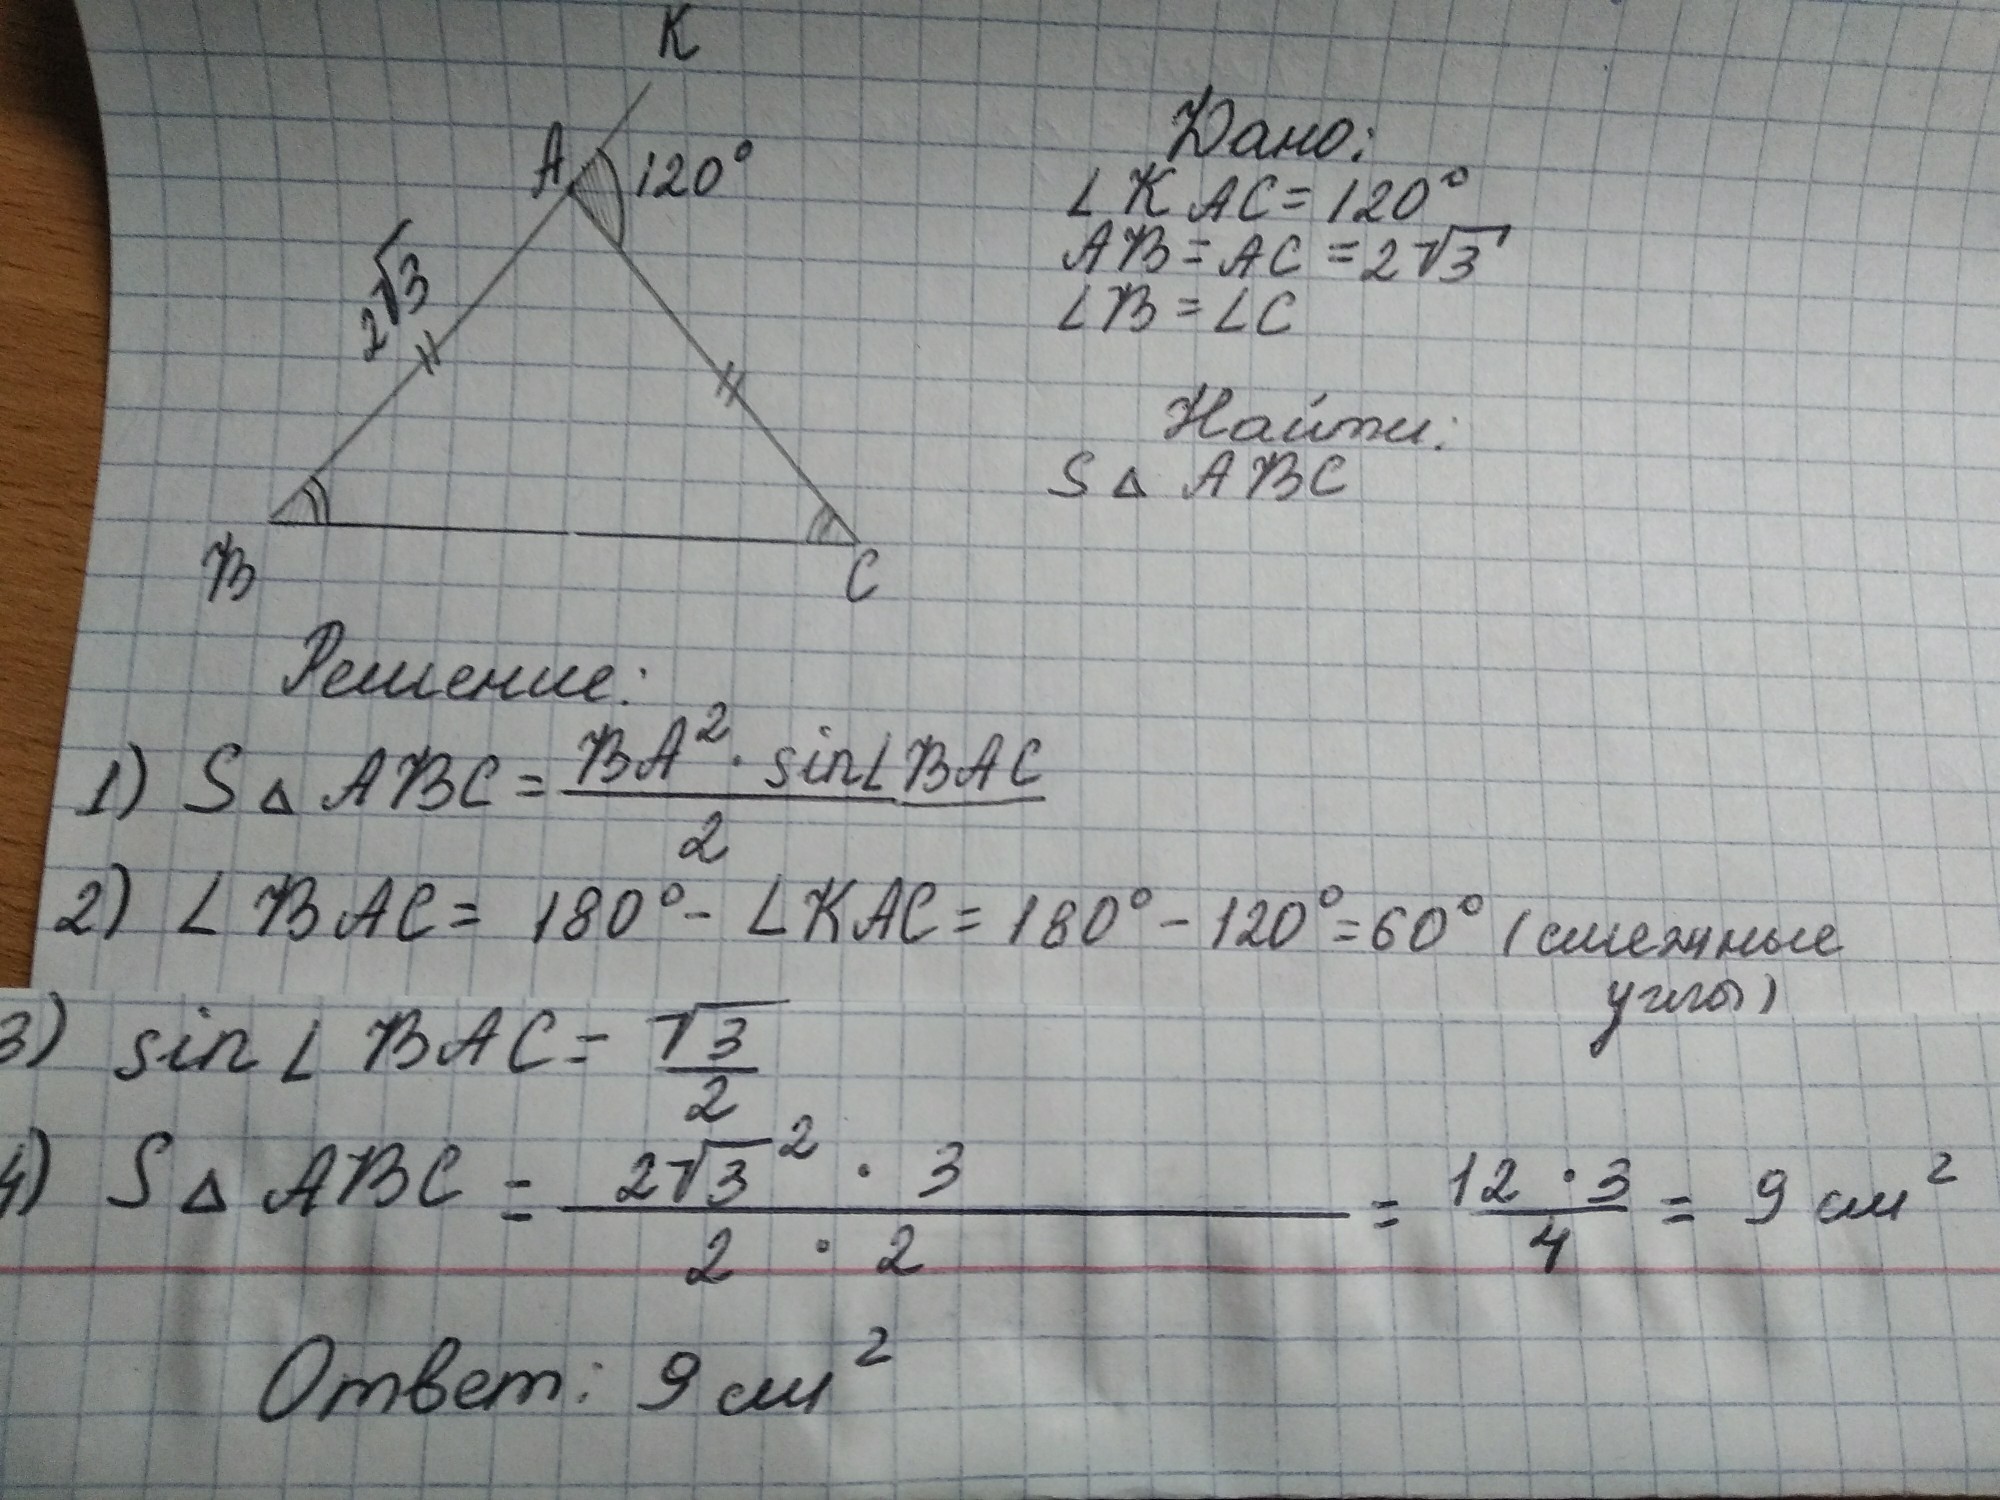 K
A
120°
2√3
B
C
Дано:
∠KAC = 120°
AB = AC = 2√3
∠B = ∠C
Найти:
S △ ABC
Решение:
1) S △ ABC = BA² · sin∠BAC / 2
2) ∠BAC = 180° - ∠KAC = 180° - 120° = 60° (смежные
углы)
3) sin∠BAC = √3 / 2
4) S △ ABC = 2√3² · 3 / 2 · 2 = 12 · 3 / 4 = 9 см²
Ответ: 9 см²